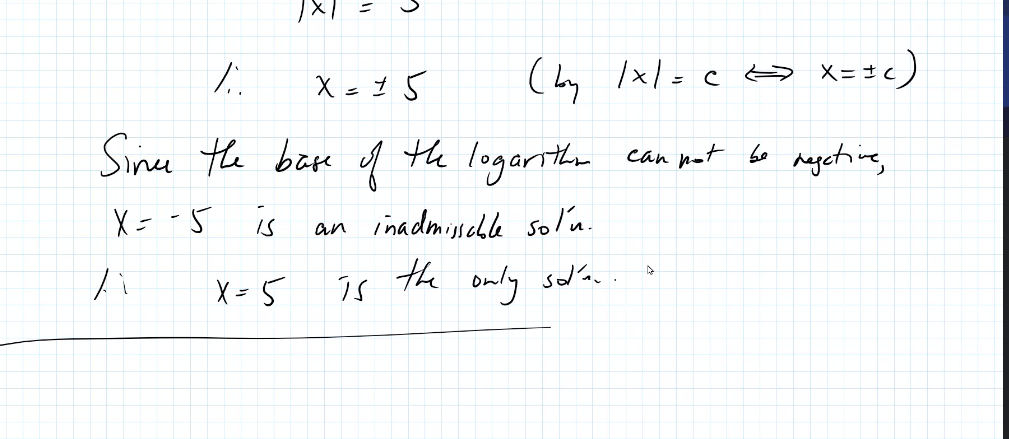 |x| = 5
∴ x = ± 5 (by |x| = c ⟺ x = ± c)
Since the base of the logarithm cannot be negative,
x = -5 is an inadmissible sol'n.
∴ x = 5 is the only sol'n.